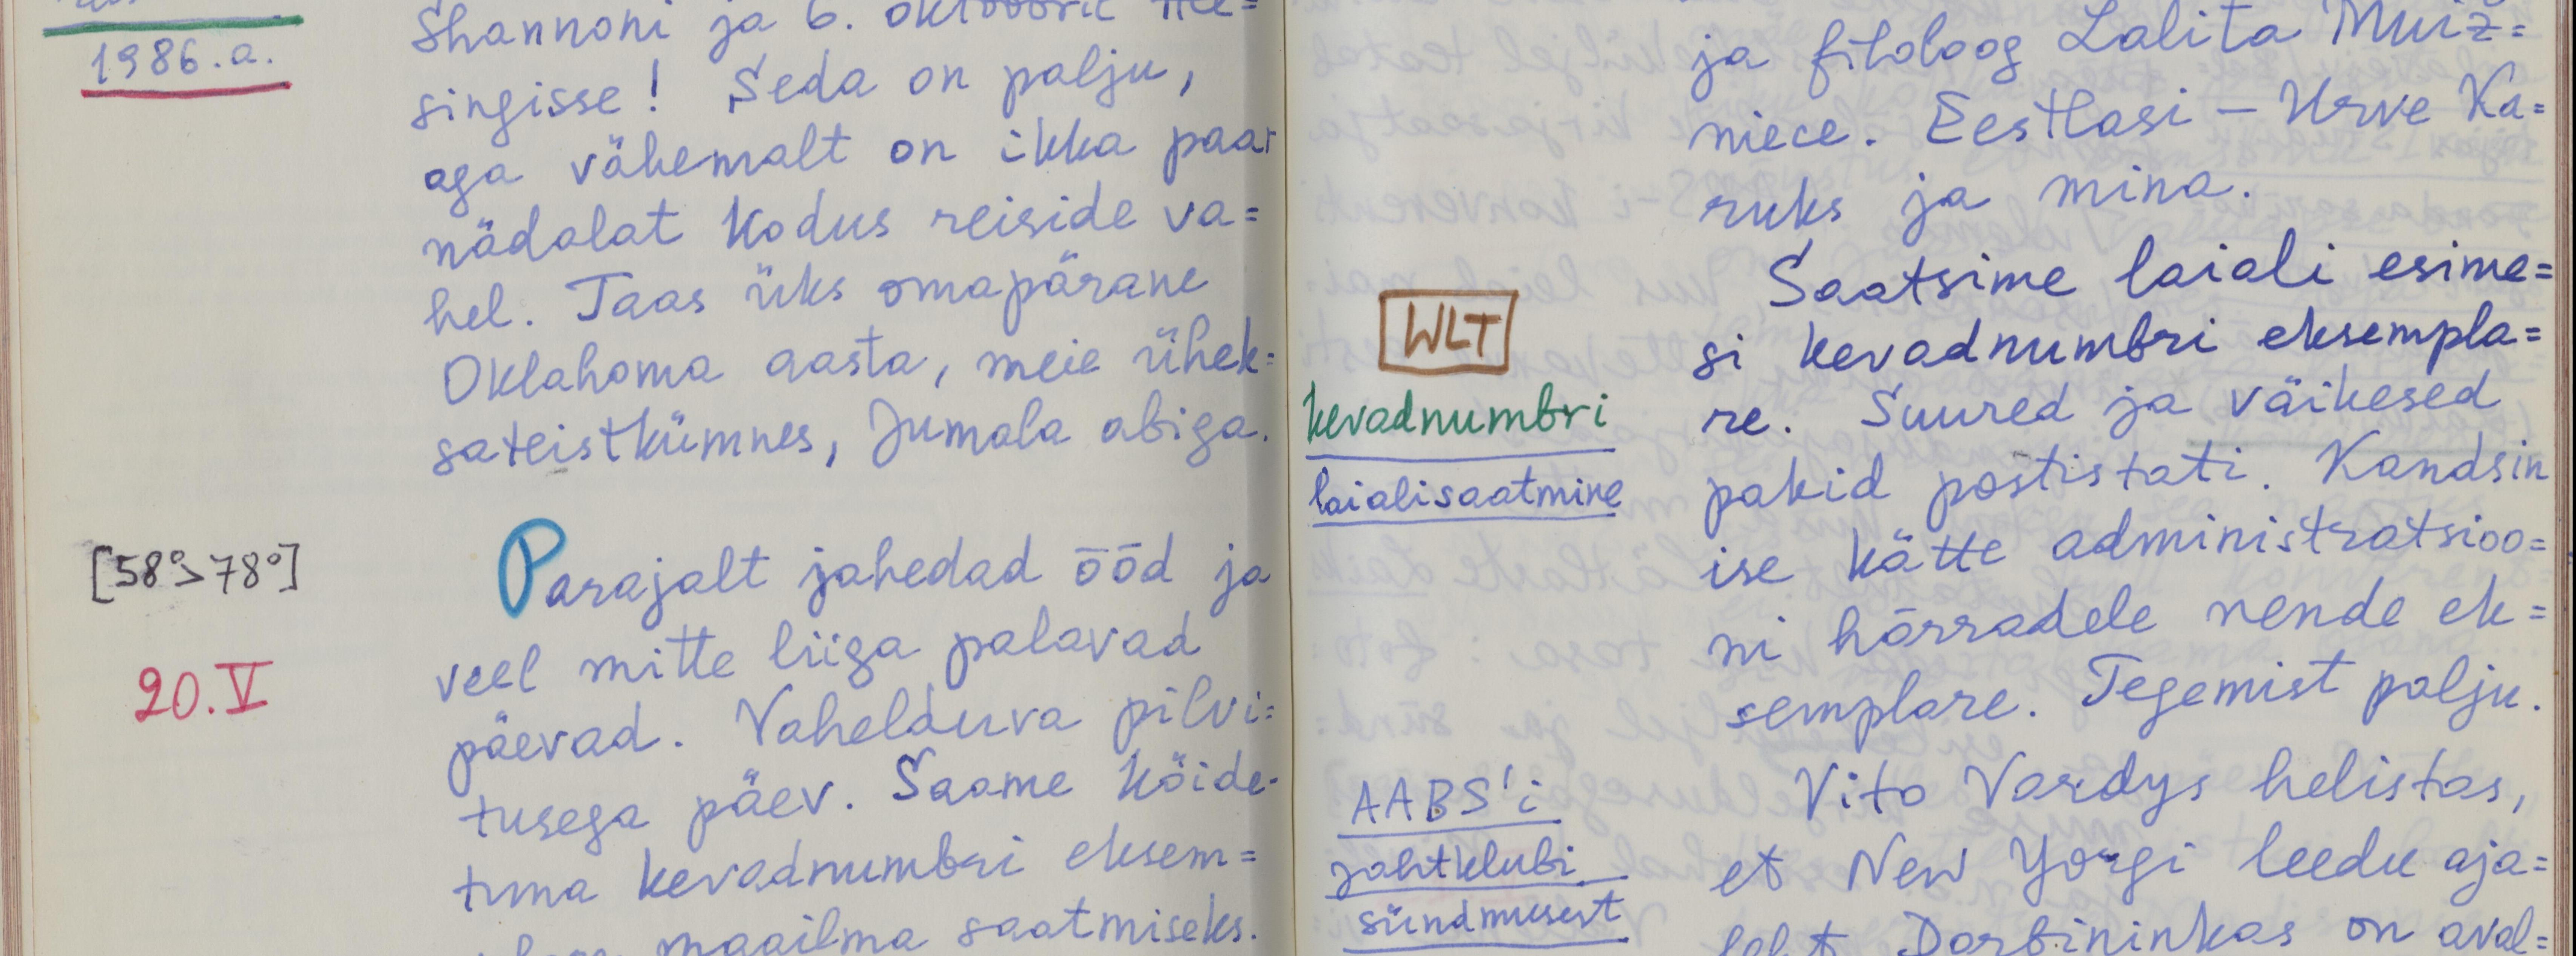 1986.a.
Shannoni ja 6. oktoobril Hel=
singisse! Seda on palju,
aga vähemalt on ikka paar
nädalat kodus reiside va=
hel. Taas üks omapärane
Oklahoma aasta, meie ühek=
sateistkümnes, Jumala abiga.
[58°>78°]
20.V
Parajalt jahedad ööd ja
veel mitte liiga palavad
päevad. Vahelduva pilvi=
tusega päev. Saame köide=
tuna kevadnumbri eksem=
maailma saatmiseks.
ja filoloog Lalita Muiž=
niece. Eestlasi – Urve Ka=
ruks ja mina.
WLT
kevadnumbri
laialisaatmine
Saatsime laiali esime=
si kevadnumbri eksempla=
re. Suured ja väikesed
pakid postistati. Kandsin
ise kätte administratsioo=
ni härradele nende ek=
semplare. Tegemist palju.
AABS'i
jahtklubi
sündmusest
Vito Vardys helistas,
et New Yorgi leedu aja=
leht Darbininkas on aval=